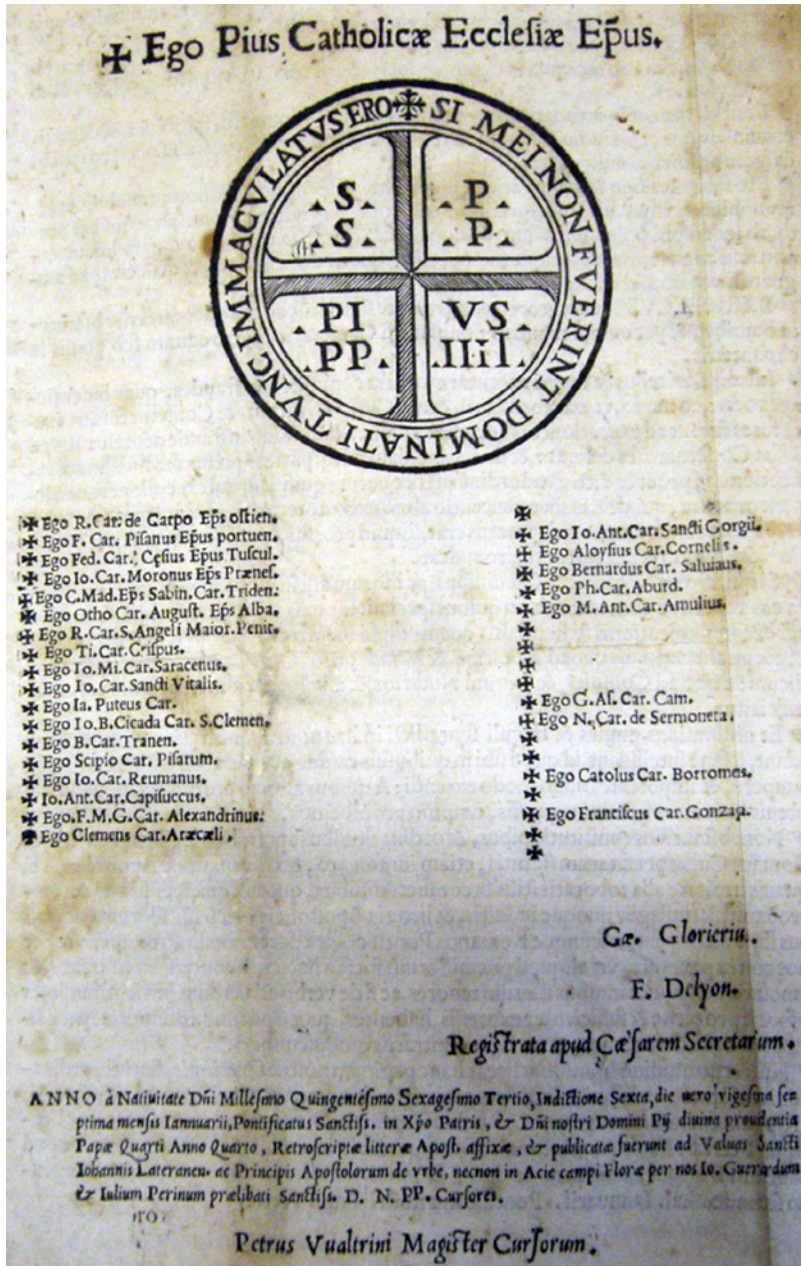 ✠ Ego Pius Catholicæ Ecclesiæ Ep̃us.
✠ SI MEI NON FVERINT DOMINATI TVNC IMMACVLATVS ERO
.S. .P.
.S. .P.
PI VS
PP. IIiI
✠ Ego R.Car. de Carpo Ep̃s ostien.
✠ Ego F. Car. Pisanus Ep̃us portuen.
✠ Ego Fed. Car. Cęsius Ep̃us Tuscul.
✠ Ego Io.Car.Moronus Ep̃s Prænes.
✠ Ego C.Mad.Ep̃s Sabin.Car.Triden.
✠ Ego Otho Car. August. Ep̃s Alba.
✠ Ego R.Car.S.Angeli Maior.Penit.
✠ Ego Ti.Car.Crispus.
✠ Ego Io.Mi.Car.Saracenus.
✠ Ego Io.Car.Sancti Vitalis.
✠ Ego Ia. Puteus Car.
✠ Ego Io.B.Cicada Car. S.Clemen.
✠ Ego B.Car.Tranen.
✠ Ego Scipio Car. Pisarum.
✠ Ego Io.Car.Reumanus.
✠ Io.Ant.Car.Capisuccus.
✠ Ego.F.M.G.Car. Alexandrinus.
Ego Clemens Car.Aræcæli.
✠
✠ Ego Io.Ant.Car.Sancti Gorgii.
✠ Ego Aloysius Car.Cornelis.
✠ Ego Bernardus Car. Saluiaus.
✠ Ego Ph.Car. Aburd.
✠ Ego M.Ant.Car.Amulius.
✠
✠
✠
✠
✠ Ego G.Aſ. Car. Cam.
✠ Ego N.Car.de Sermoneta.
✠
✠
✠ Ego Catolus Car. Borromes.
✠
✠ Ego Franciscus Car.Gonzag.
✠
✠
Gæ. Glorieriu.
F. Delyon.
Registrata apud Cæſarem Secretarum.
ANNO à Natiuitate Dñi Milleſimo Quingenteſimo Sexageſimo Tertio, Indictione Sexta, die uero vigeſima ſe
ptima menſis Iannuarii, Pontificatus Sanctiſs. in Xp̃o Patris, & Dñi noſtri Domini Pij diuina prouidentia
Papæ Quarti Anno Quarto, Retroſcriptæ litteræ Apoſt. affixæ, & publicatæ fuerunt ad Valuas Sancti
Iohannis Lateraneń. ac Principis Apoſtolorum de vrbe, necnon in Acie campi Floræ per nos Io. Guerardum
& Iulium Perinum prælibati Sanctiſs. D. N. PP. Curſores.
Petrus Vualtrini Magiſter Curſorum.